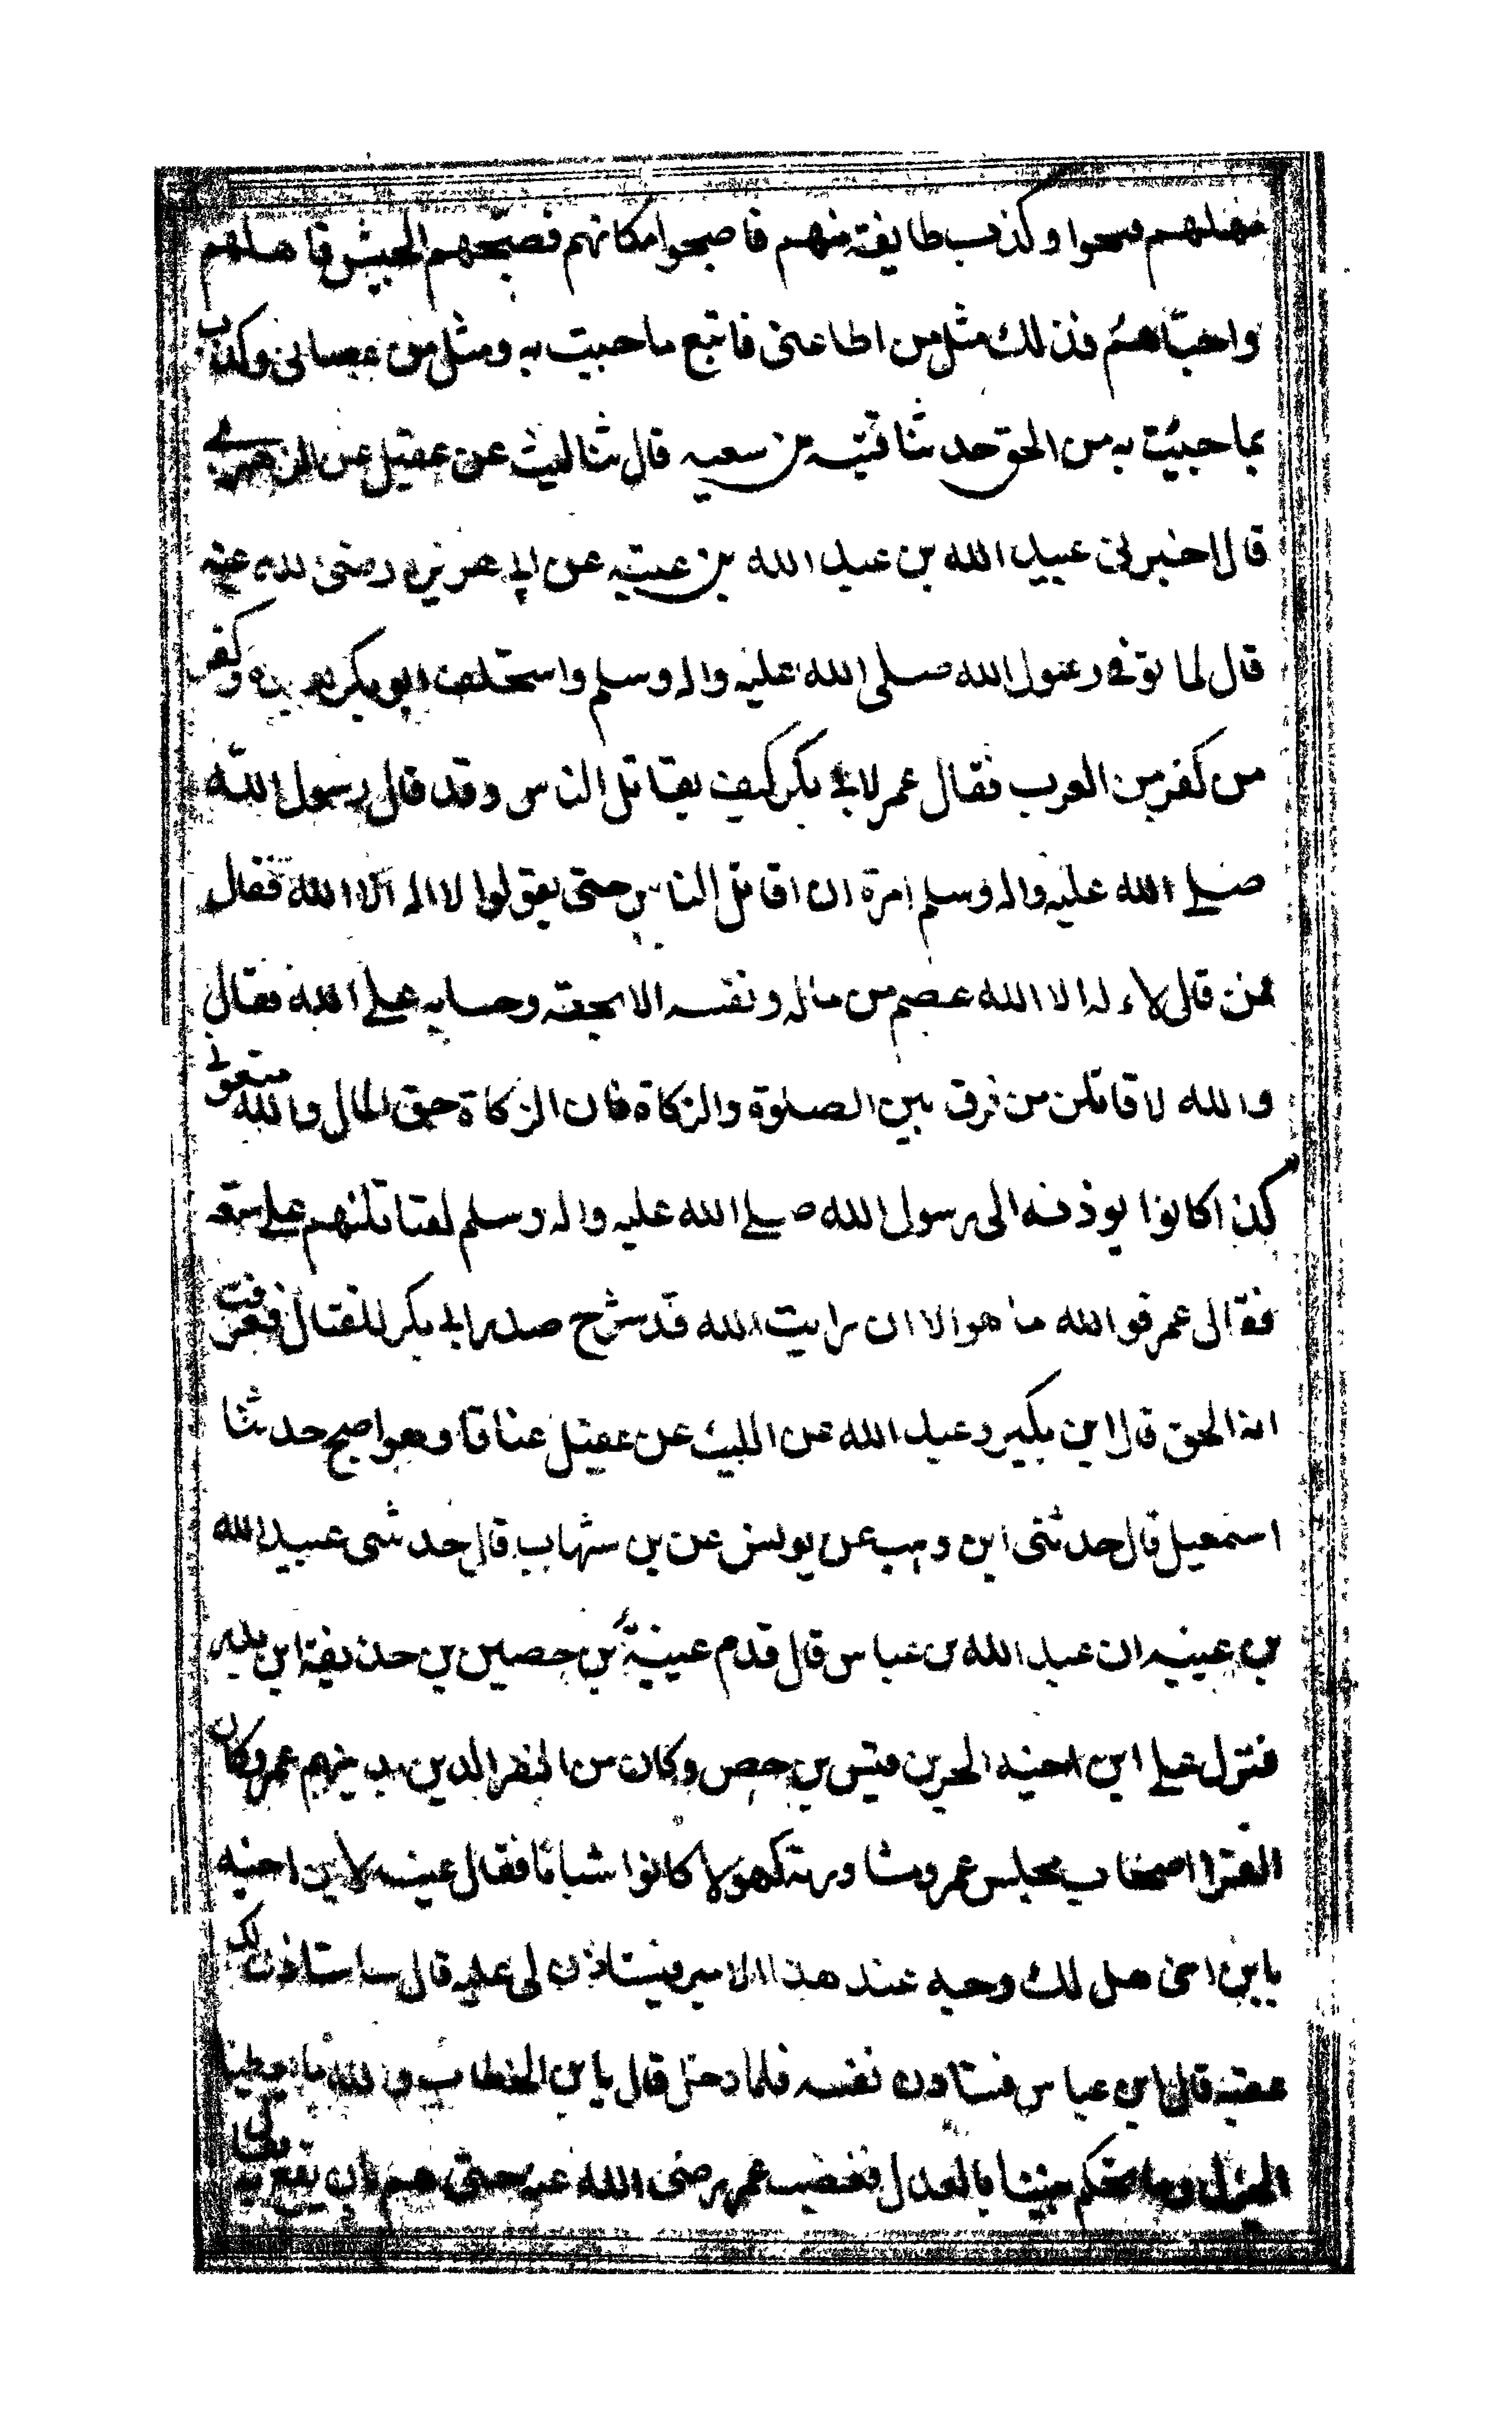 مهلهم فنجوا وكذبت طايفة منهم فاصبحوا مكانهم فصبحهم الجيش فاهلهم
واجتاهم فذلك مثل من اطاعني فاتبع ماجيت به ومثل من عصاني وكذب
بما جيت به من الحق حدثنا قتيبه بن سعيد قال ثنا ليث عن عقيل عن الزهري
قال اخبرني عبيد الله بن عبد الله بن عتبه عن ابي هريره رضي الله عنه
قال لما توفي رسول الله صلى الله عليه واله وسلم واستخلف ابو بكر بعده وكفر
من كفر من العرب فقال عمر لابي بكر كيف يقاتل الناس وقد قال رسول الله
صلے الله عليه واله وسلم امرة ان اقاتل الناس حتى يقولوا لا اله الا الله فقال
فمن قال لاء له الا الله عصم من ماله ونفسه الا بحقه وحسابه علے الله فقال
والله لاقاتلن من فرق بين الصلوة والزكاة فان الزكاة حق المال والله منعوني
كذا كانوا يوذنه الى رسول الله صلے الله عليه واله وسلم لقاتلنهم علے منعه
فقال عمر فوالله ما هو الا ان رايت الله قد شرح صدر ابي بكر للقتال فعرفت
انه الحق قال ابن بكير وعبد الله عن الليث عن عقيل عناقا وهو اصح حدثنا
اسمعيل قال حدثنى ابن وهب عن يونس عن بن شهاب قال حدثنى عبيد الله
بن عينيه ان عبد الله بن عباس قال قدم عيينة بن حصين بن حذيفة ابن بدر
فنزل علے ابن اخيه الحر بن قيس بن حصن وكان من النفر الذين يدينهم عمر وكان
القرا اصحاب مجلس عمر ومشاورته كهولا كانوا شبابا فقال عينيه لابن اخيه
يا بن اخى هل لك وجه عند هذا الامير فيستاذن لى عليه قال ساستاذن لك
عليه قال ابن عباس فستاذن نفسه فلما دخل قال يا بن الخطاب والله ما تعطينا
الجزل وما تحكم بيننا بالعدل فغضب عمر رضى الله عنه حتى هم بان يقع به